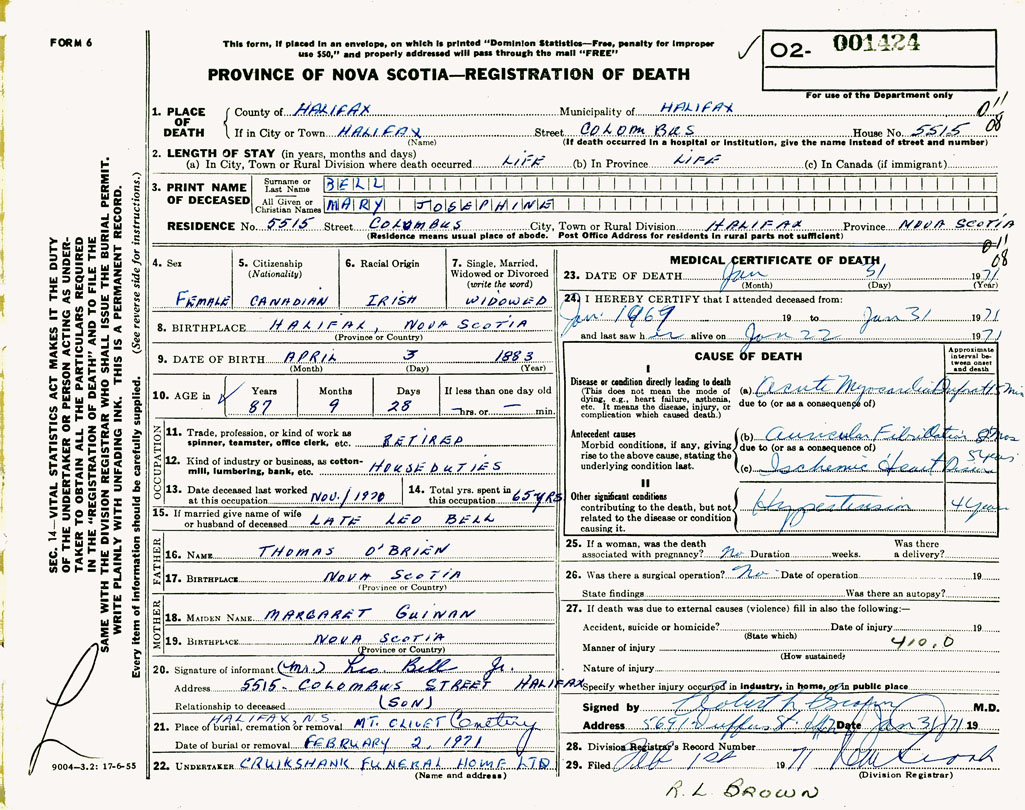 FORM 6
This form, if placed in an envelope, on which is printed "Dominion Statistics—Free, penalty for improper
use $50," and properly addressed will pass through the mail "FREE"
O2- 001424
For use of the Department only
PROVINCE OF NOVA SCOTIA—REGISTRATION OF DEATH
1. PLACE OF DEATH County of HALIFAX Municipality of HALIFAX
If in City or Town HALIFAX Street COLOMBUS House No. 5515
(Name) (If death occurred in a hospital or institution, give the name instead of street and number)
011
08
2. LENGTH OF STAY (in years, months and days)
(a) In City, Town or Rural Division where death occurred LIFE (b) In Province LIFE (c) In Canada (if immigrant)
3. PRINT NAME OF DECEASED
Surname or Last Name BELL
All Given or Christian Names MARY JOSEPHINE
RESIDENCE No. 5515 Street COLOMBUS City, Town or Rural Division HALIFAX Province NOVA SCOTIA
(Residence means usual place of abode. Post Office Address for residents in rural parts not sufficient)
011
08
4. Sex FEMALE
5. Citizenship (Nationality) CANADIAN
6. Racial Origin IRISH
7. Single, Married, Widowed or Divorced (write the word) WIDOWED
8. BIRTHPLACE HALIFAX, NOVA SCOTIA
(Province or Country)
9. DATE OF BIRTH APRIL 3 1883
(Month) (Day) (Year)
10. AGE in Years 87 Months 9 Days 28 If less than one day old — hrs. or — min.
OCCUPATION
11. Trade, profession, or kind of work as spinner, teamster, office clerk, etc. RETIRED
12. Kind of industry or business, as cotton-mill, lumbering, bank, etc. HOUSEDUTIES
13. Date deceased last worked at this occupation NOV./1970 14. Total yrs. spent in this occupation 65 YRS
15. If married give name of wife or husband of deceased LATE LEO BELL
FATHER
16. NAME THOMAS O'BRIEN
17. BIRTHPLACE NOVA SCOTIA
(Province or Country)
MOTHER
18. MAIDEN NAME MARGARET GUINAN
19. BIRTHPLACE NOVA SCOTIA
(Province or Country)
20. Signature of informant (Mr.) Leo Bell Jr.
Address 5515- COLOMBUS STREET HALIFAX
Relationship to deceased (SON)
HALIFAX, N.S.
21. Place of burial, cremation or removal MT. OLIVET Cemetery
Date of burial or removal FEBRUARY 2, 1971
22. UNDERTAKER CRUIKSHANK FUNERAL HOME LTD
(Name and address)
MEDICAL CERTIFICATE OF DEATH
23. DATE OF DEATH Jan 31 1971
(Month) (Day) (Year)
24. I HEREBY CERTIFY that I attended deceased from:
Jan. 1969 19 to Jan 31 1971
and last saw her alive on Jan 22 1971
CAUSE OF DEATH
Approximate interval between onset and death
I
Disease or condition directly leading to death
(This does not mean the mode of dying, e.g., heart failure, asthenia, etc. It means the disease, injury, or complication which caused death.)
(a) Acute Myocardial
due to (or as a consequence of)
Antecedent causes
Morbid conditions, if any, giving rise to the above cause, stating the underlying condition last.
(b) Auricular Fibrillation
due to (or as a consequence of)
(c) Ischemic Heart Disease 5 years
II
Other significant conditions
contributing to the death, but not related to the disease or condition causing it.
Hypertension 4 years
25. If a woman, was the death associated with pregnancy? No Duration weeks. Was there a delivery?
26. Was there a surgical operation? No Date of operation 19
State findings Was there an autopsy?
27. If death was due to external causes (violence) fill in also the following:—
Accident, suicide or homicide? Date of injury 19
(State which)
Manner of injury 410.0
(How sustained)
Nature of injury
Specify whether injury occurred in industry, in home, or in public place
Signed by M.D.
Address 5691 Duffus St Date Jan 31/71 19
28. Division Registrar's Record Number
29. Filed Feb 1st 1971
(Division Registrar)
R.L. BROWN
SEC. 14—VITAL STATISTICS ACT MAKES IT THE DUTY
OF THE UNDERTAKER OR PERSON ACTING AS UNDER-
TAKER TO OBTAIN ALL THE PARTICULARS REQUIRED
IN THE "REGISTRATION OF DEATH" AND TO FILE THE
SAME WITH THE DIVISION REGISTRAR WHO SHALL ISSUE THE BURIAL PERMIT.
WRITE PLAINLY WITH UNFADING INK. THIS IS A PERMANENT RECORD.
Every item of information should be carefully supplied. (See reverse side for instructions.)
9004—3.2: 17-6-55